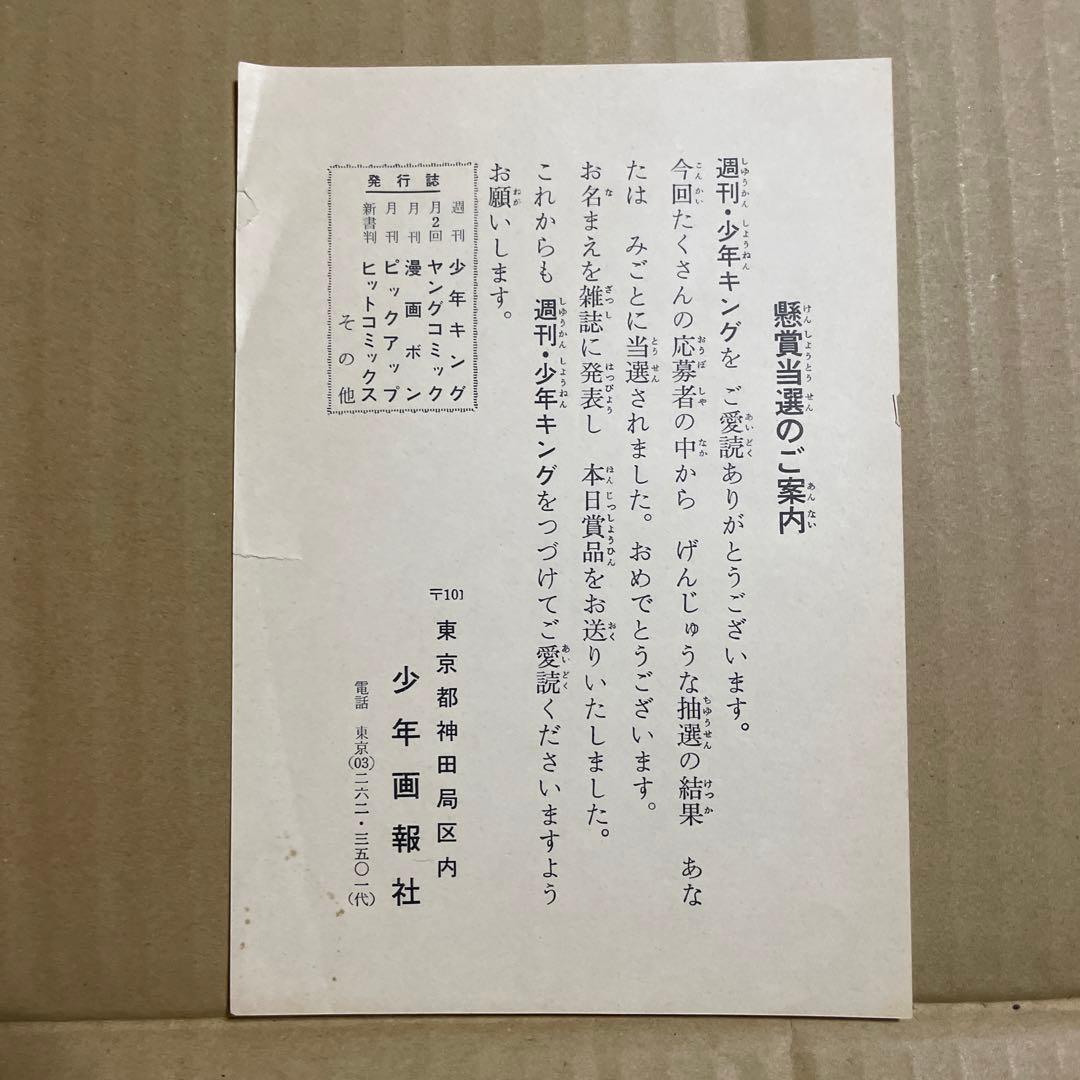 懸賞当選のご案内
週刊・少年キングを ご愛読ありがとうございます。
今回たくさんの応募者の中から げんじゅうな抽選の結果 あな
たは みごとに当選されました。おめでとうございます。
お名まえを雑誌に発表し 本日賞品をお送りいたしました。
これからも 週刊・少年キングをつづけてご愛読くださいますよう
お願いします。
〒101 東京都神田局区内
少年画報社
電話 東京(03)二六二・三五〇一(代)
発行誌
週刊 少年キング
月2回 ヤングコミック
月刊 漫画ボン
月刊 ピックアップ
新書判 ヒットコミックス
その他